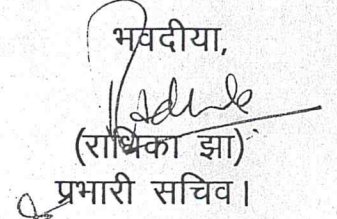 भवदीया,
(राधिका झा)
प्रभारी सचिव।